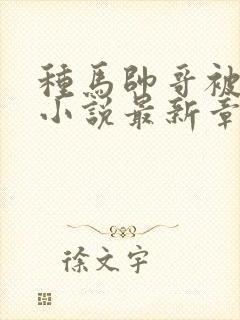 種馬帥哥被
小說最新章
徐文宇